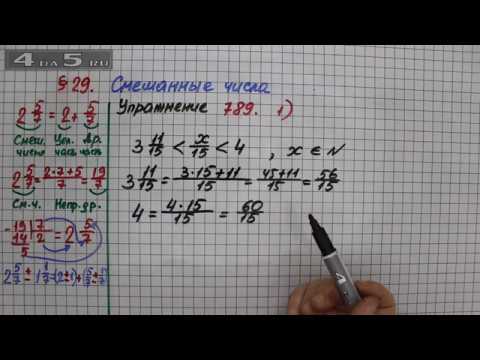 4 DA 5 RU
§ 29. Смешанные числа
Упражнение 789. 1)
2 5/7 = 2 + 5/7
Смеш. Цел. Др.
число часть часть
2 5/7 = (2·7+5)/7 = 19/7
См.ч. Непр.др.
- 19 | 7
14 | 2 = 2 5/7
5
2 5/7 ± 1 1/7 = (2 ± 1) + (5/7 ±
3 11/15 < x/15 < 4 , x ∈ N
3 11/15 = (3·15+11)/15 = (45+11)/15 = 56/15
4 = (4·15)/15 = 60/15